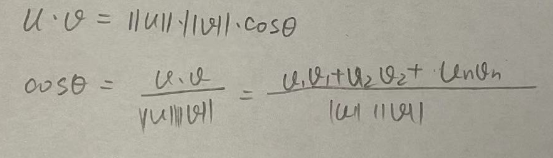 u·v = ||u||·||v||·cosθ
cosθ = u·v / ||u||||v|| = u₁v₁+u₂v₂+·uₙvₙ / |u| ||v||